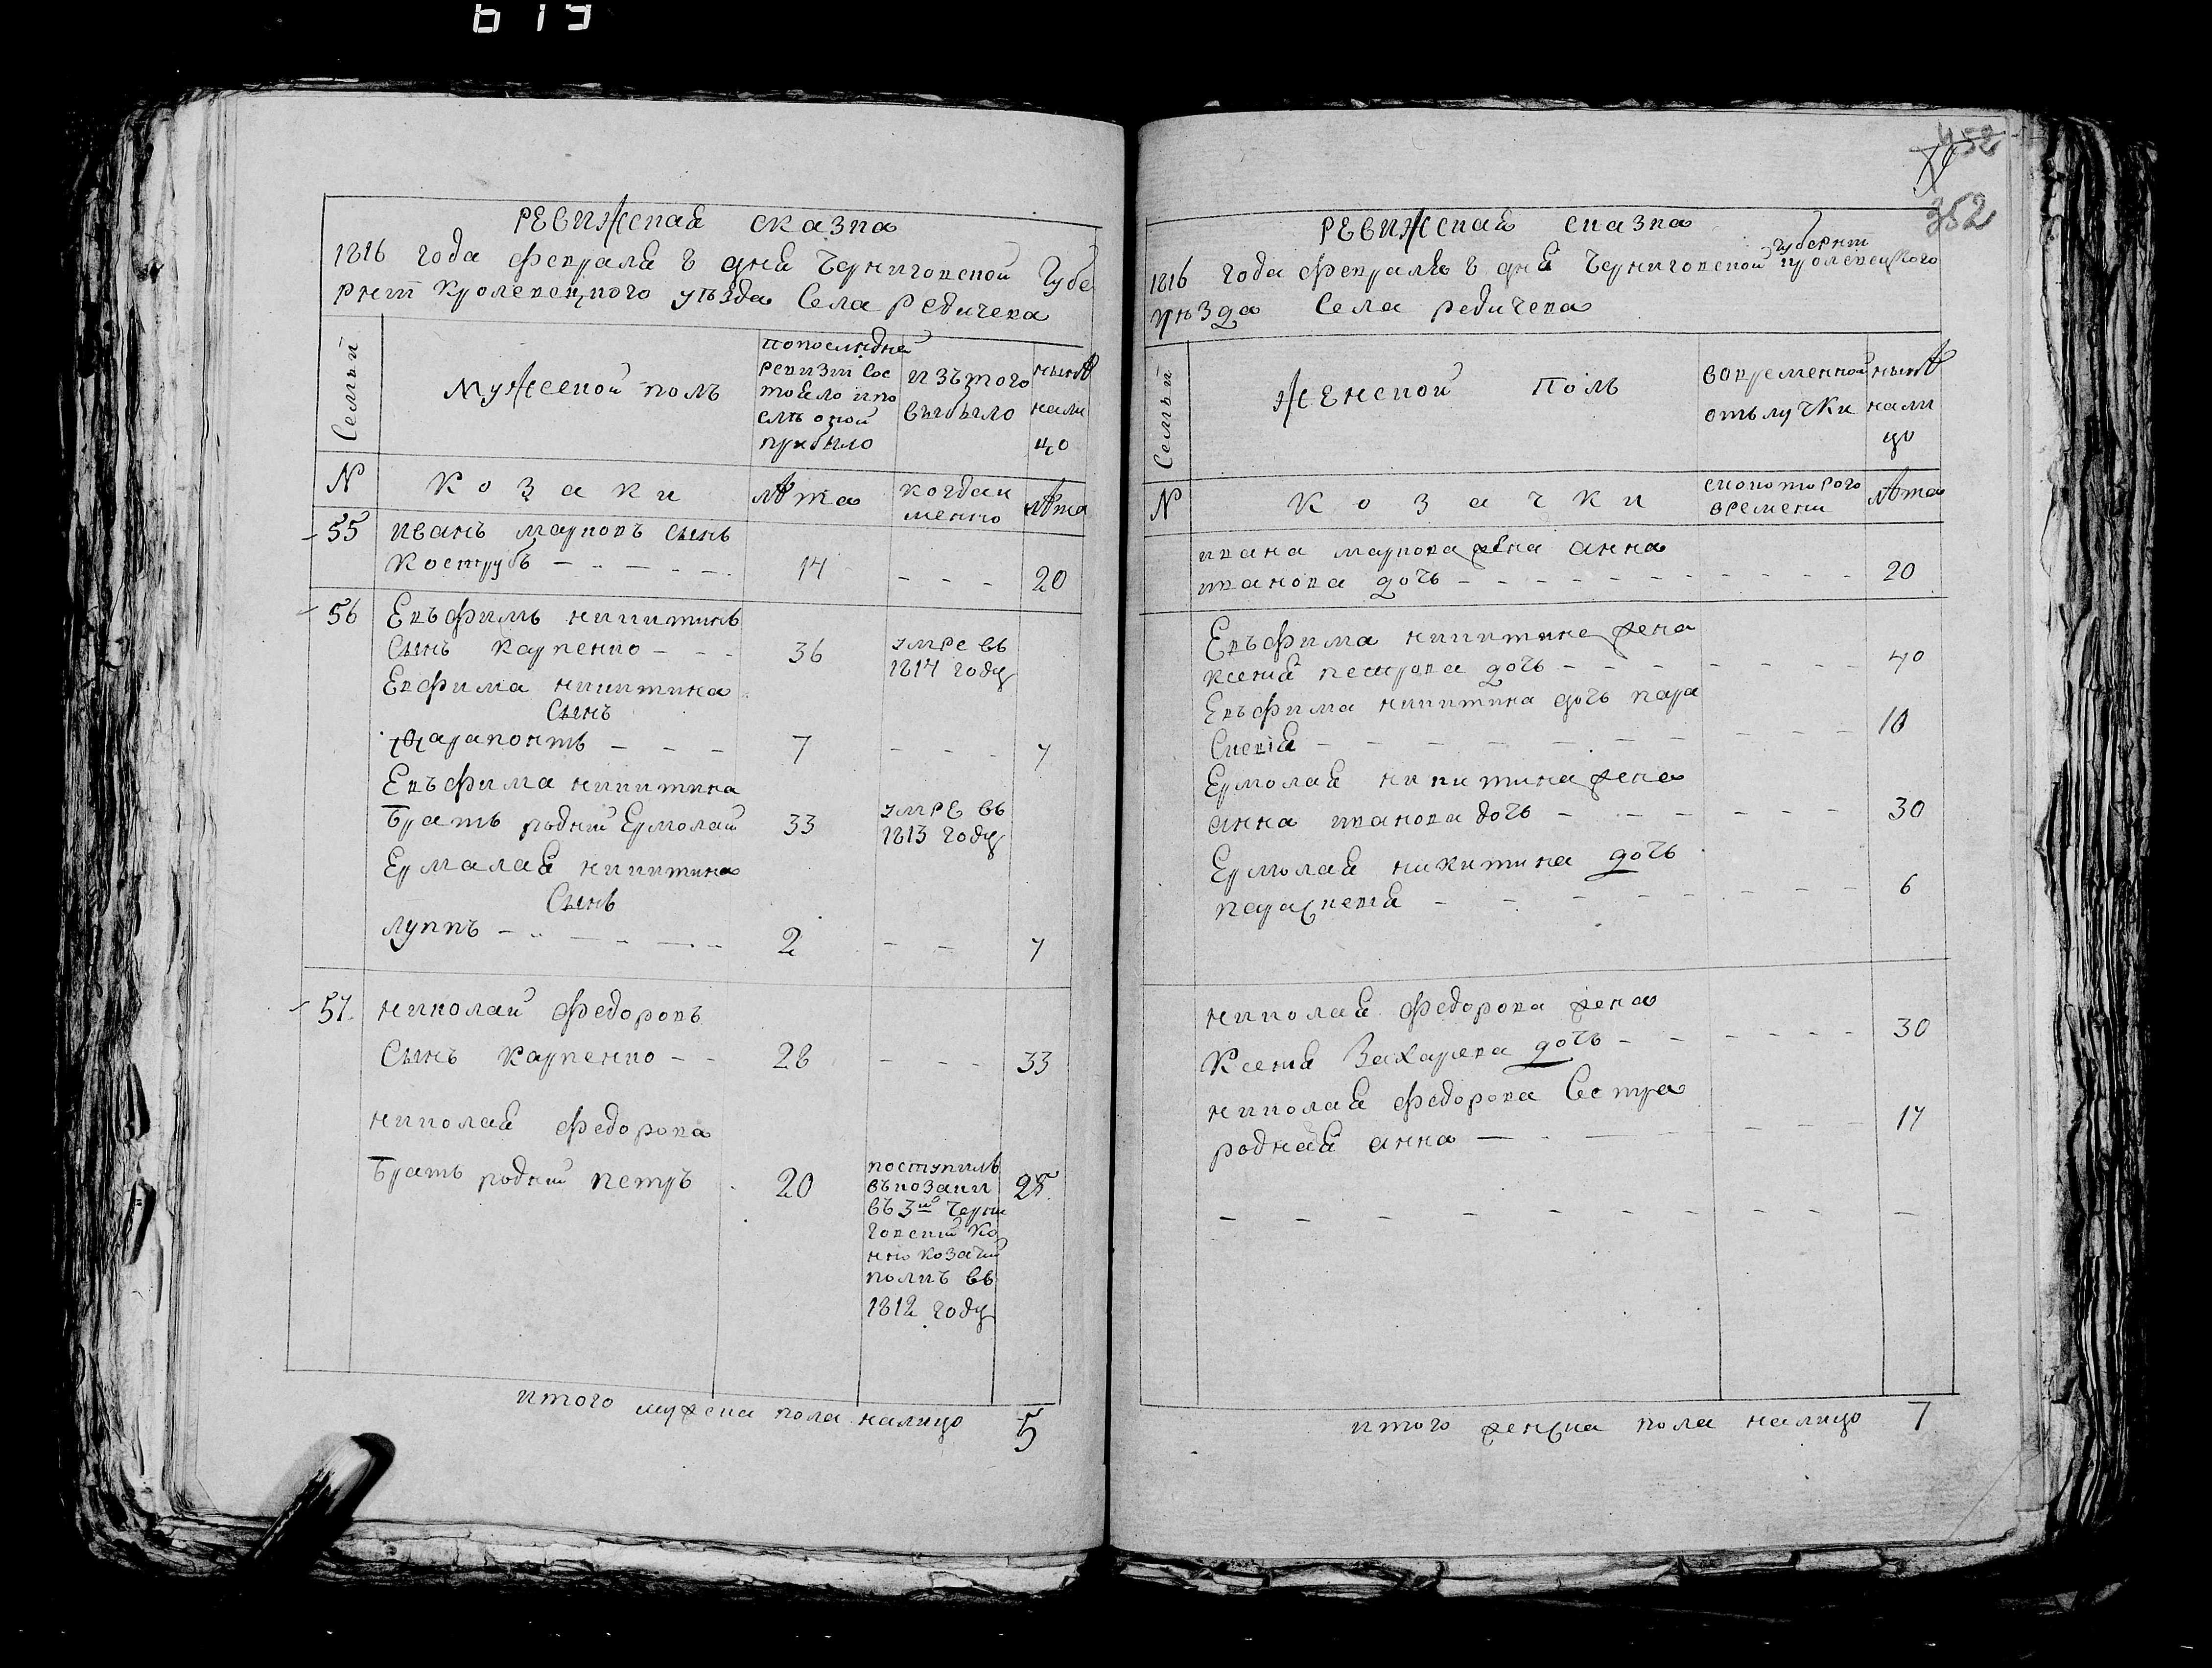 619
ревижская сказка
1816 года февраля дня Черниговской Губе
рнии Кролевецкого уезда Села Редичева
Семьи
Мужеской полъ
попоследней
ревизии сос
тояло ипо
слѣ оной
прибыло
изътого
выбыло
нынѣ
нали
цо
N
Козаки
лѣта
когдаи
менно
лѣта
55
иванъ марковъ сынъ
Кострубъ 14 20
56
Евъфимъ никитинъ
Сынъ Карпенко 36
умре въ
1814 году
Евфима никитина
Сынъ
Фарапонтъ 7 7
Евъфима никитина
Братъ родний Ермолай 33
умре въ
1813 году
Ермалая никитина
Сынъ
луппъ 2 7
57
николай федоровъ
Сынъ Карпенко 28 33
николая федорова
Братъ родний петръ 20 25
поступилъ
въкозаки
въ 3й Черни
говский Ко
нно козачий
полкъ въ
1812 году
итого мужска пола налицо 5
452
352
ревижская сказка
1816 года февраля дня Черниговской губернии кролевецкого
уѣзда Села редичева
Семьи
Женской Полъ
вовременной
отълучки
нынѣ
нали
цо
N
Козачки
скокоторого
времени
лѣта
ивана маркова жена анна
иванова дочь 20
Евъфима никитина жена
ксения петрова дочь 40
Евъфима никитина дочь пара
Скевия 10
Ермолая никитина жена
анна иванова дочь 30
Ермолая никитина дочь
параскевия 6
николая федорова жена
Ксения Захарева дочь 30
николая федорова Сестра
родная анна 17
итого женска пола налицо 7